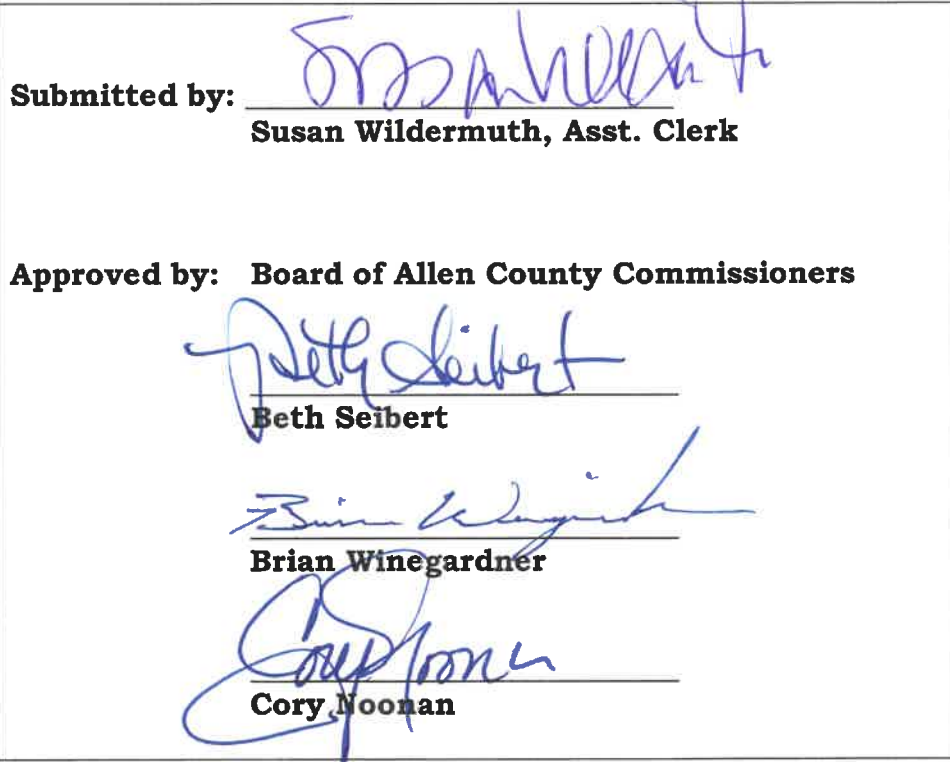 Submitted by: Susan Wildermuth
Susan Wildermuth, Asst. Clerk
Approved by: Board of Allen County Commissioners
Beth Seibert
Beth Seibert
Brian Winegardner
Brian Winegardner
Cory Noonan
Cory Noonan